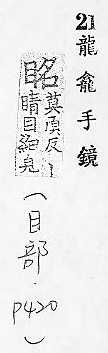 21 龍龕手鏡
眳
莫頂反丨
睛目細皃
(目部·P420)